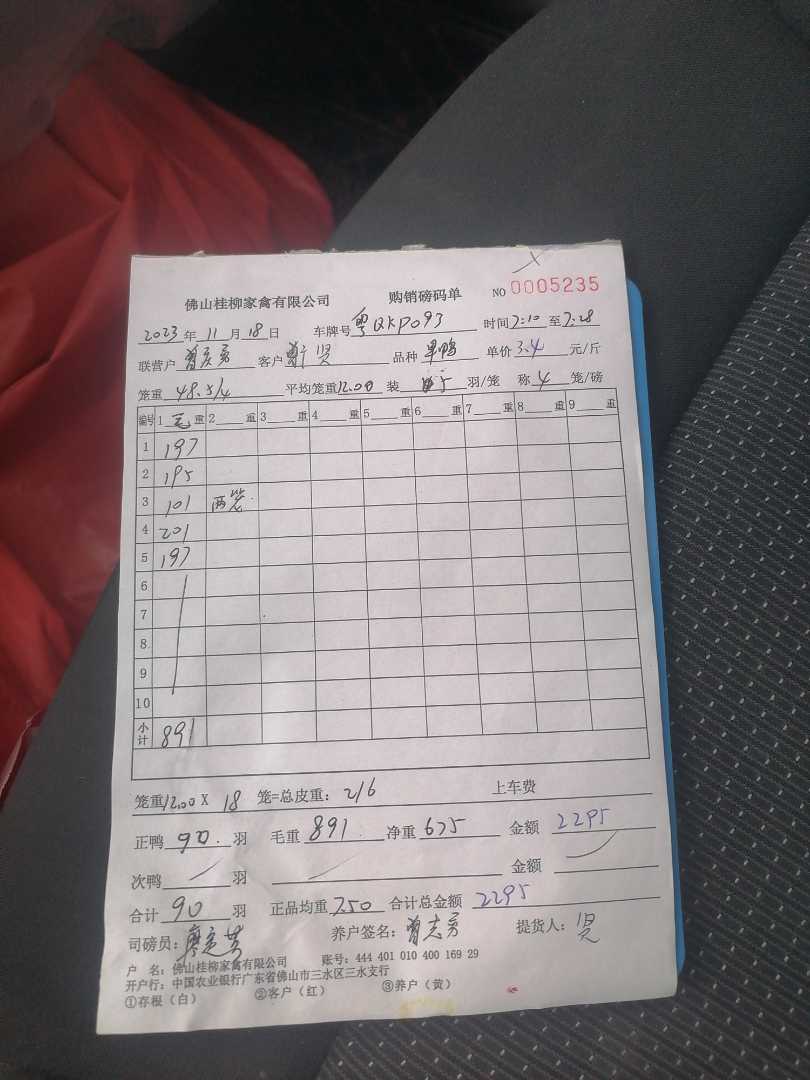 佛山桂柳家禽有限公司 购销磅码单 NO 0005235
2023年11月18日 车牌号粤QKP093 时间7:10至7:28
联营户 客户 贤 品种 单价3.4元/斤
笼重48.5/4 平均笼重12.00装5羽/笼 称4笼/磅
编号 1毛重 2重 3重 4重 5重 6重 7重 8重 9重
1 197
2 195
3 101 两笼
4 201
5 197
6
7
8
9
10
小计 891
笼重12.00 X 18 笼=总皮重：216 上车费
正鸭90.羽 毛重891 净重675 金额2295
次鸭羽 金额
合计90羽 正品均重7.50 合计总金额2295
司磅员： 养户签名：曾志勇 提货人：贤
户 名：佛山桂柳家禽有限公司 账号：444 401 010 400 169 29
开户行：中国农业银行广东省佛山市三水区三水支行
①存根（白） ②客户（红） ③养户（黄）